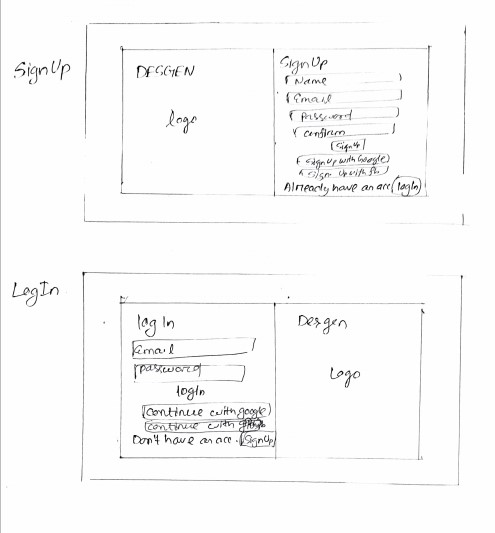 SignUp
DESGEN
logo
SignUp
Name
Email
Password
Confirm
SignUp
Sign Up with Google
Sign Up with
Already have an acc login
LogIn
log In
Email
password
login
continue with google
continue with
Don't have an acc. SignUp
Desgen
Logo